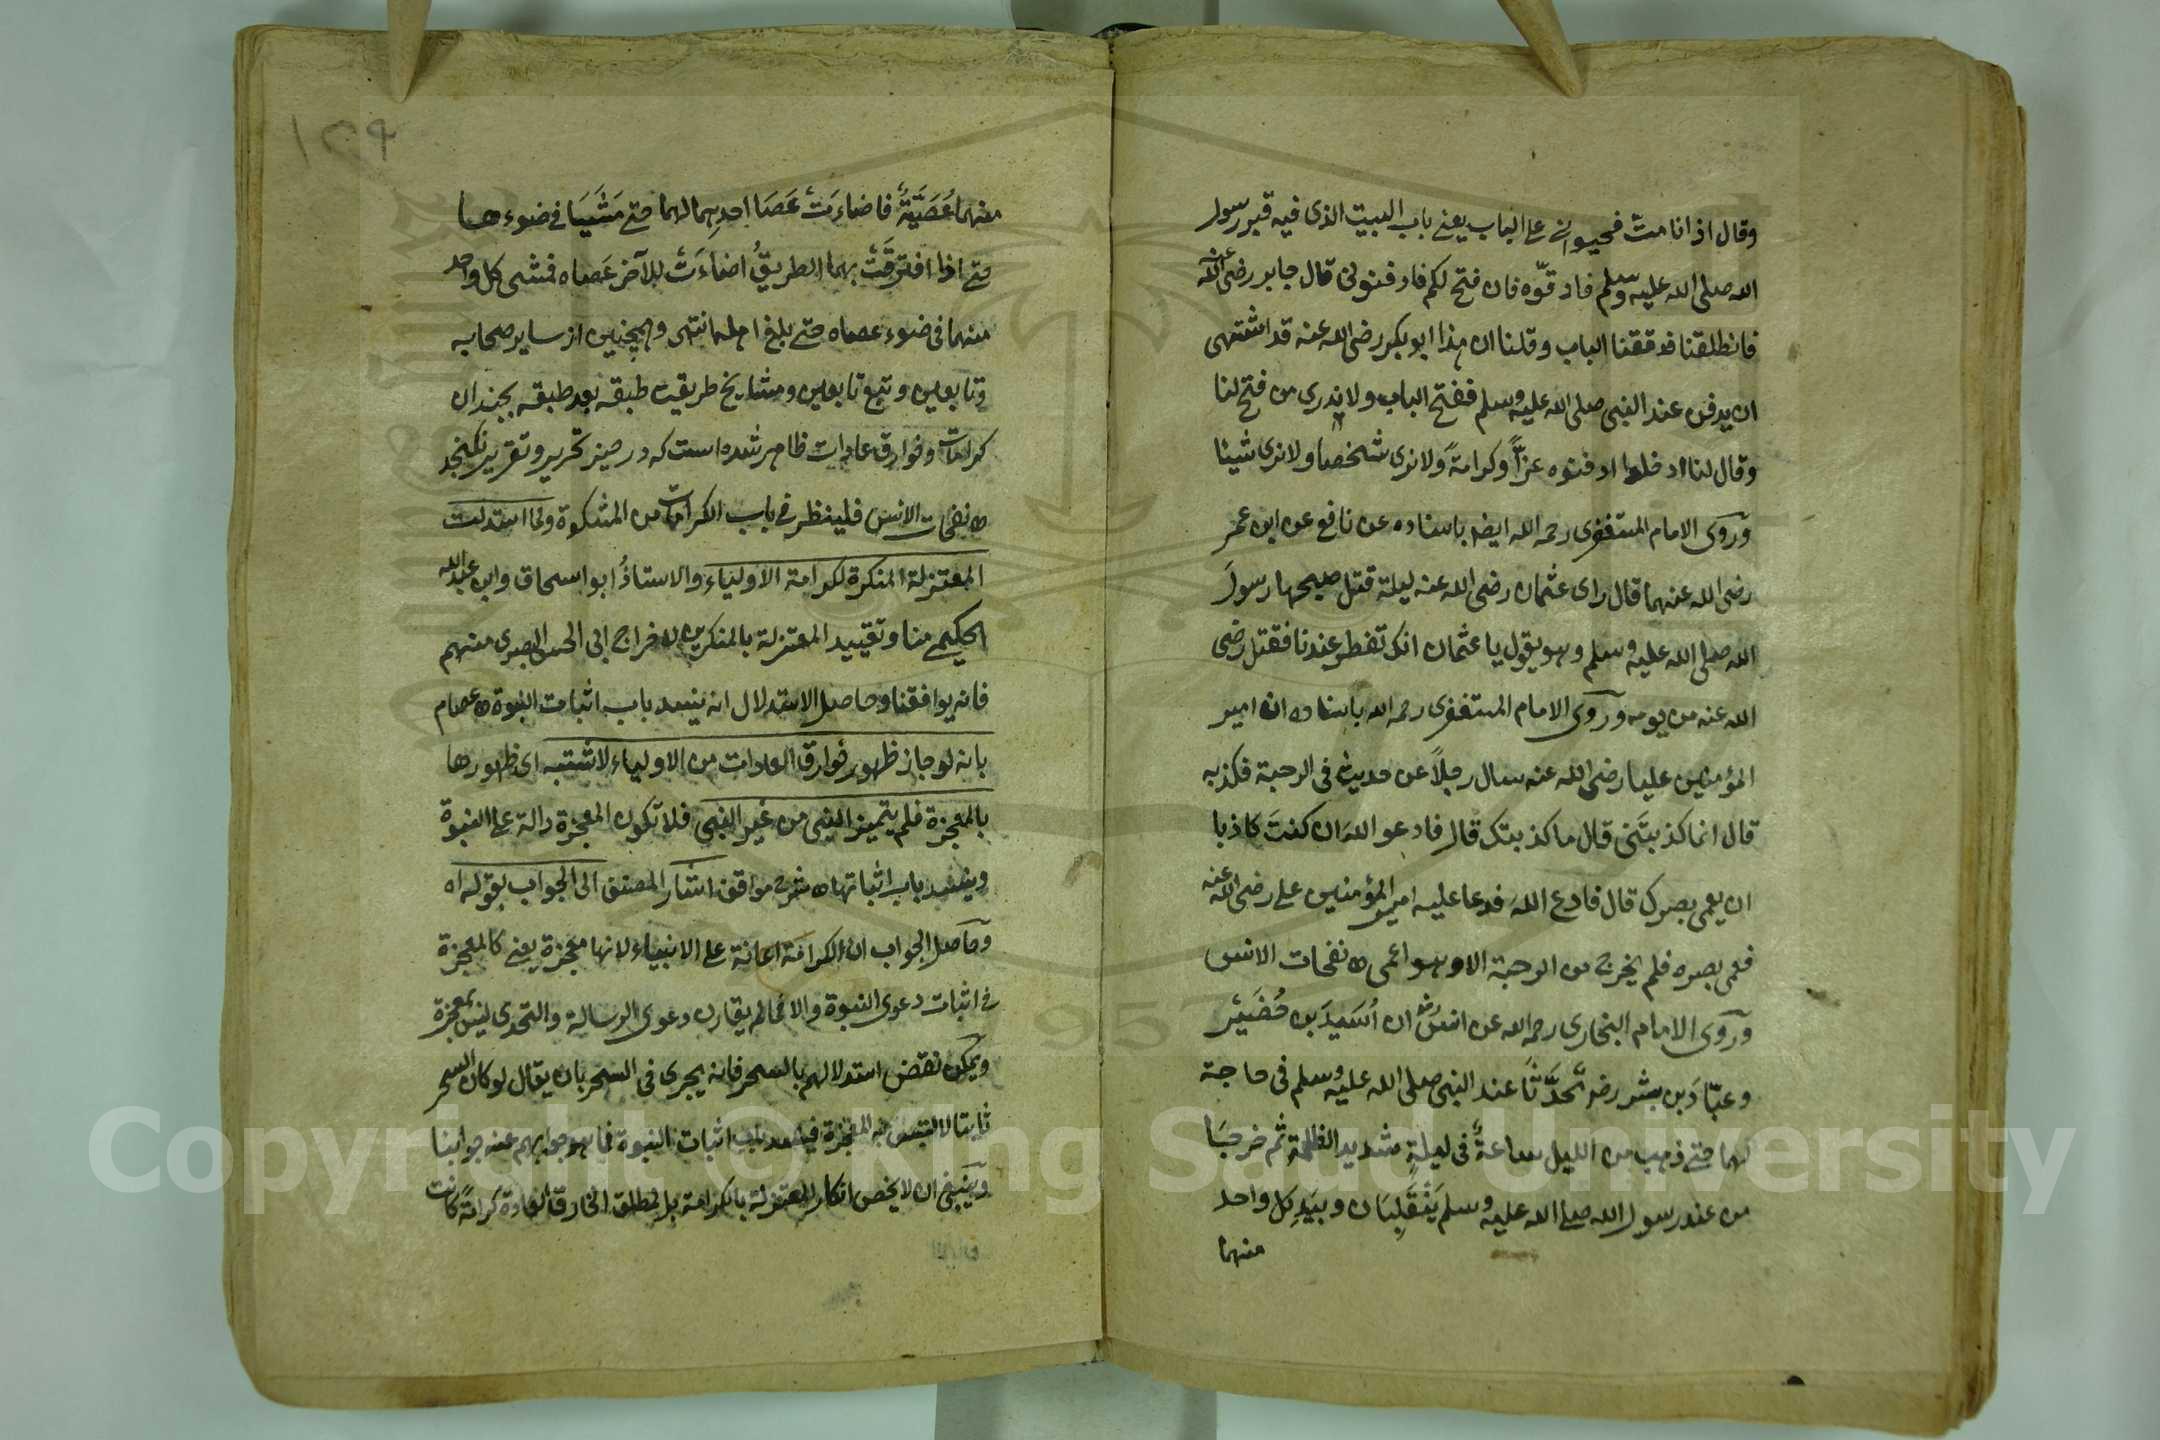 وقال اذ انا مت فجيوا بى على الباب يعنى باب البيت الذى فيه قبر رسول
الله صلى الله عليه وسلم فادقوه فان فتح لكم فادفنونى قال جابر رضى الله عنه
فانطلقنا فدققنا الباب وقلنا ان هذا ابو بكر رضى الله عنه قد اشتهى
ان يدفن عند النبى صلى الله عليه وسلم ففتح الباب ولا ندرى من فتح لنا
وقال لنا ادخلوا ادفنوه عزاً وكرامةً ولا نرى شخصا ولا نرى شيئا
وروى الامام المستغفرى رحمه الله ايضا باسناده عن نافع عن ابن عمر
رضى الله عنهما قال راى عثمان رضى الله عنه ليلة قتل صبيحها رسول
الله صلى الله عليه وسلم وهو يقول يا عثمان انك تفطر عندنا فقتل رضى
الله عنه من يومه وروى الامام المستغفرى رحمه الله باسناده ان امير
المؤمنين عليا رضى الله عنه سال رجلاً عن حديث فى الرحبة فكذبه
قال انما كذبتَنى قال ما كذبتك قال فادعو الله ان كنتَ كاذبا
ان يعمى بصرك قال فادع الله فدعا عليه امير المؤمنين على رضى الله عنه
فعمى بصره فلم يخرج من الرحبة الا وهو اعمى نفحات الانس
وروى الامام البخارى رحمه الله عن انس ان اُسَيدَ بن حُضَيْر
وعبّادَ بن بشر تَحَدَّثا عند النبى صلى الله عليه وسلم فى حاجة
لهما حتى ذهب من الليل ساعةٌ فى ليلةٍ شديد الظلمة ثم خرجَا
من عند رسول الله صلى الله عليه وسلم يَنْقَلِبَان وبيَدِ كل واحد
منهما
١٥٩
منهما عُصَيَّةٌ فاضاءَتْ عَصَا احدِهما لهما حتى مَشَيَا فى ضوءها
حتى اذا افترقَتْ بهما الطريقُ اضاءَتْ للآخر عَصاه فمشى كل واحد
منهما فى ضوء عصاه حتى بلغ اهله انتهى وهمچنين از ساير صحابه
وتابعين وتبع تابعين ومشايخ طريقت طبقه بعد طبقه بچندان
كرامات وخوارق عادات ظاهر شده است كه در حيز تحرير وتقرير نكنجد
نفحات الانس فلينظر فى باب الكرامات من المشكوة ولما استدلت
المعتزلة المنكرة لكرامة الاولياء والاستاذُ ابو اسحاق وابن عبد الله
الحكيمى منا وتقييد المعتزلة بالمنكرين لاخراج ابى الحسن البصرى منهم
فانه يوافقنا وحاصل الاستدلال انه ينسد باب اثبات النبوة عصام
بانه لو جاز ظهور خوارق العادات من الاولياء لاشتبه اى ظهورها
بالمعجزة فلم يتميز النبى من غير النبى فلا تكون المعجزة دالة على النبوة
وينسد باب اثباتها شرح مواقف اشار المصنف الى الجواب بقوله اه
وحاصل الجواب ان الكرامة اعانة على الانبياء لانها معجزة يعنى كالمعجزة
فى اثبات دعوى النبوة والا فما لم يقارن دعوى الرسالة والتحدى ليس بمعجزة
ويمكن نقض استدلالهم بالسحر فانه يجرى فى السحر بان يقال لو كان السحر
ثابتا لالتبس المعجزة فينسد باب اثبات النبوة فما هو جوابهم عنه جوابنا
وينبغى ان لا يخص انكار المعتزلة بالكرامة بل لمطلق الخارق العادة كرامةً كانت
Copyright © King Saud University